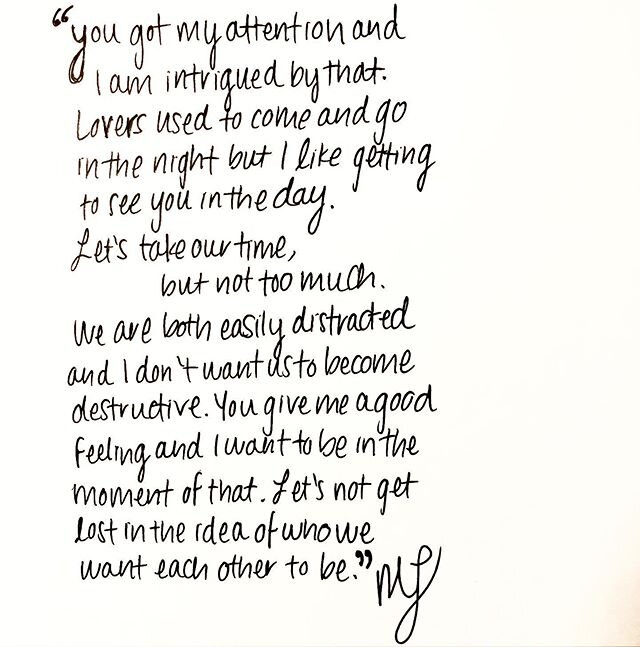 “you got my attention and
I am intrigued by that.
Lovers used to come and go
in the night but I like getting
to see you in the day.
Let's take our time,
but not too much.
We are both easily distracted
and I don't want us to become
destructive. You give me a good
feeling and I want to be in the
moment of that. Let's not get
lost in the idea of who we
want each other to be.”